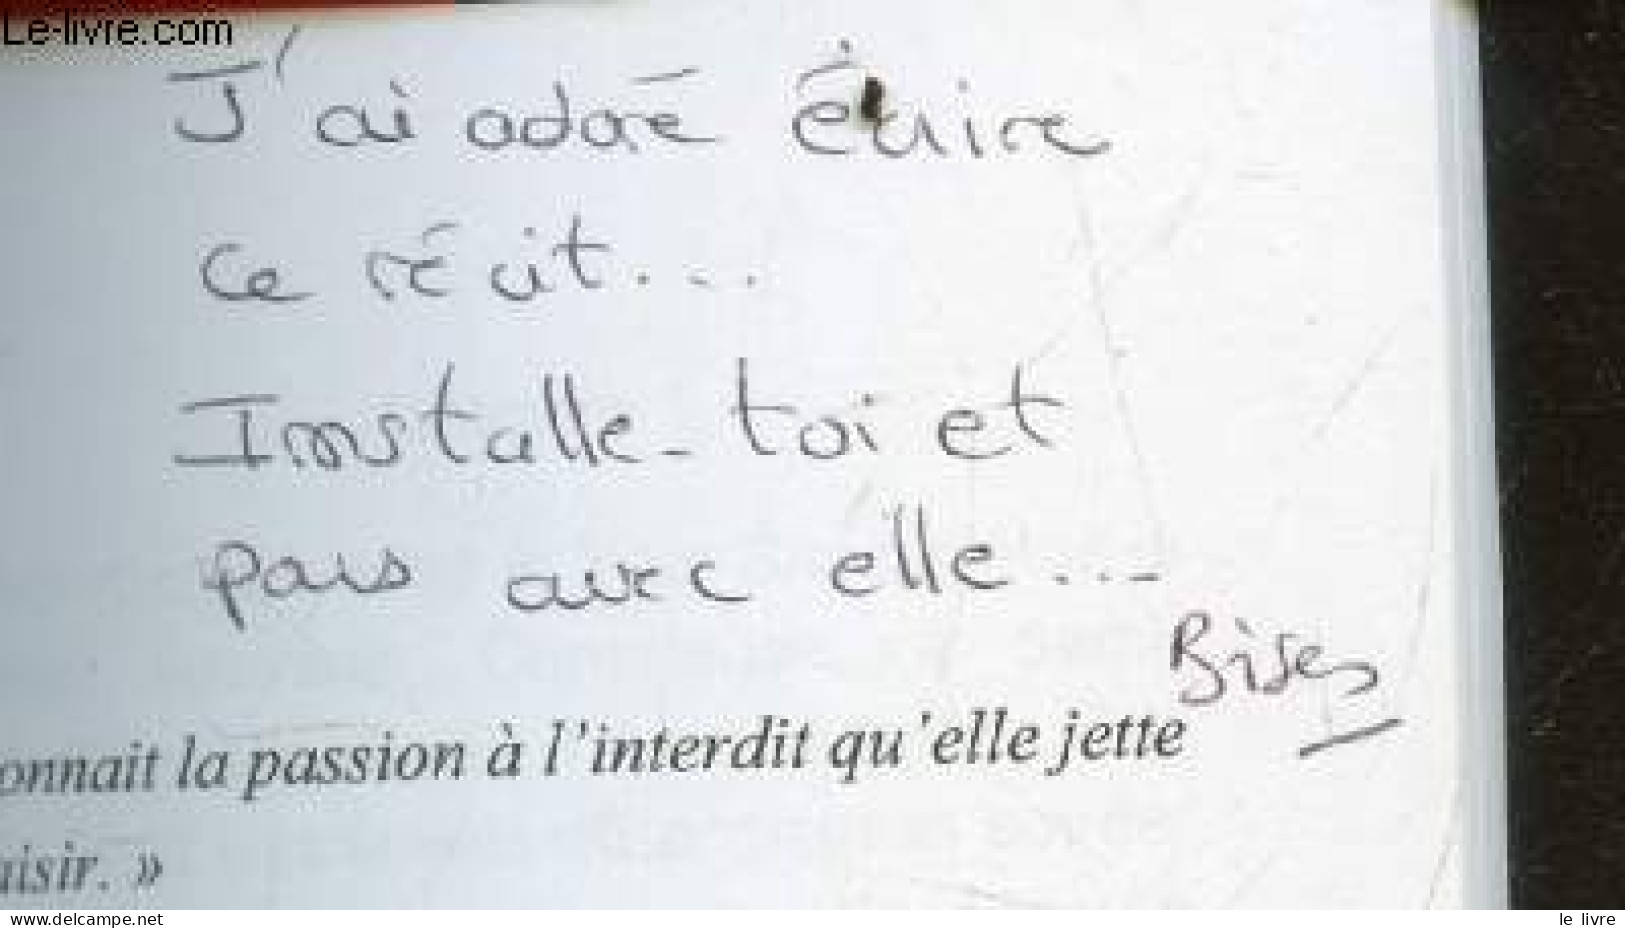 Le-livre.com
J'ai adoré écrire
ce récit...
Installe-toi et
pars avec elle...
Bises
onnait la passion à l'interdit qu'elle jette
aisir. »
www.delcampe.net
le livre